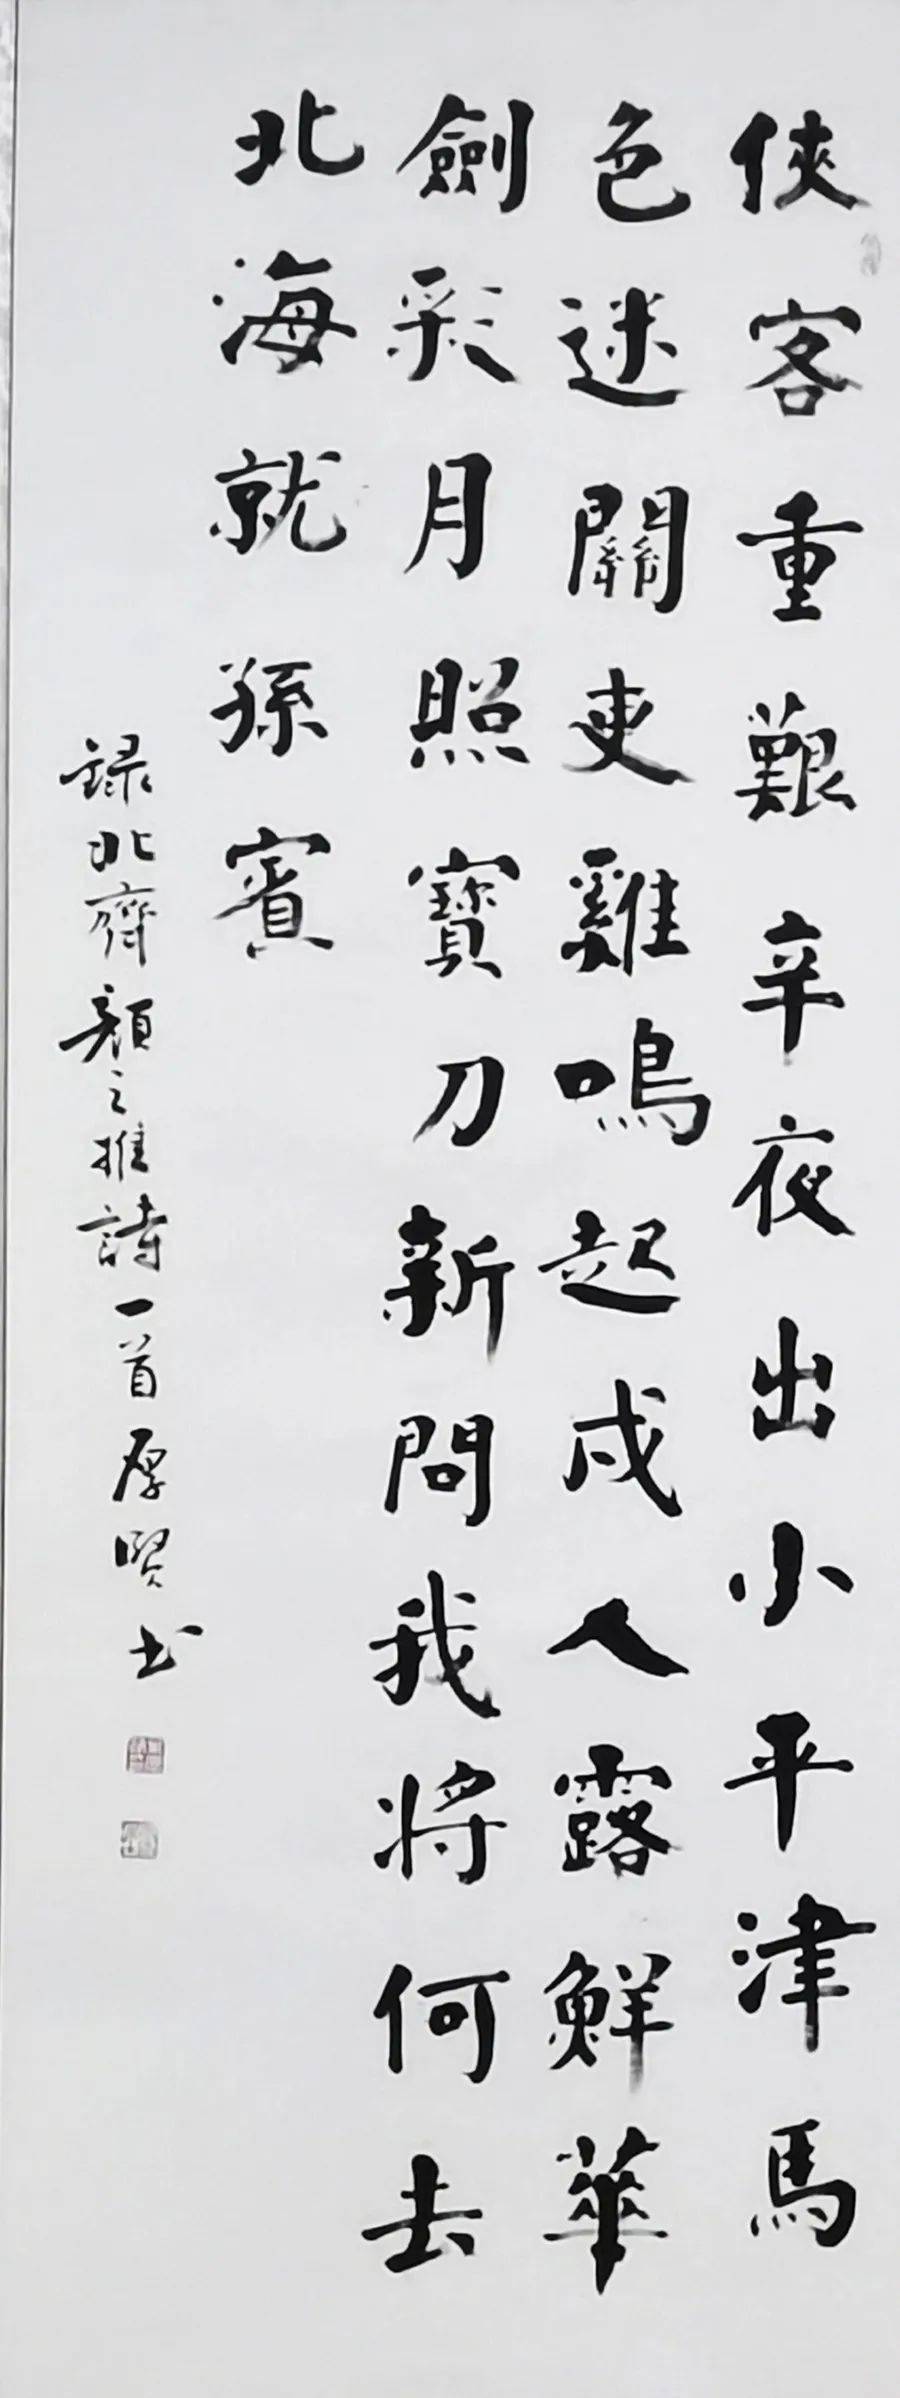 俠客重艱辛夜出小平津馬
色迷關吏雞鳴起戍人露鮮華
劍彩月照寶刀新問我將何去
北海就孫賓
録北齊顏之推詩一首厚賢书